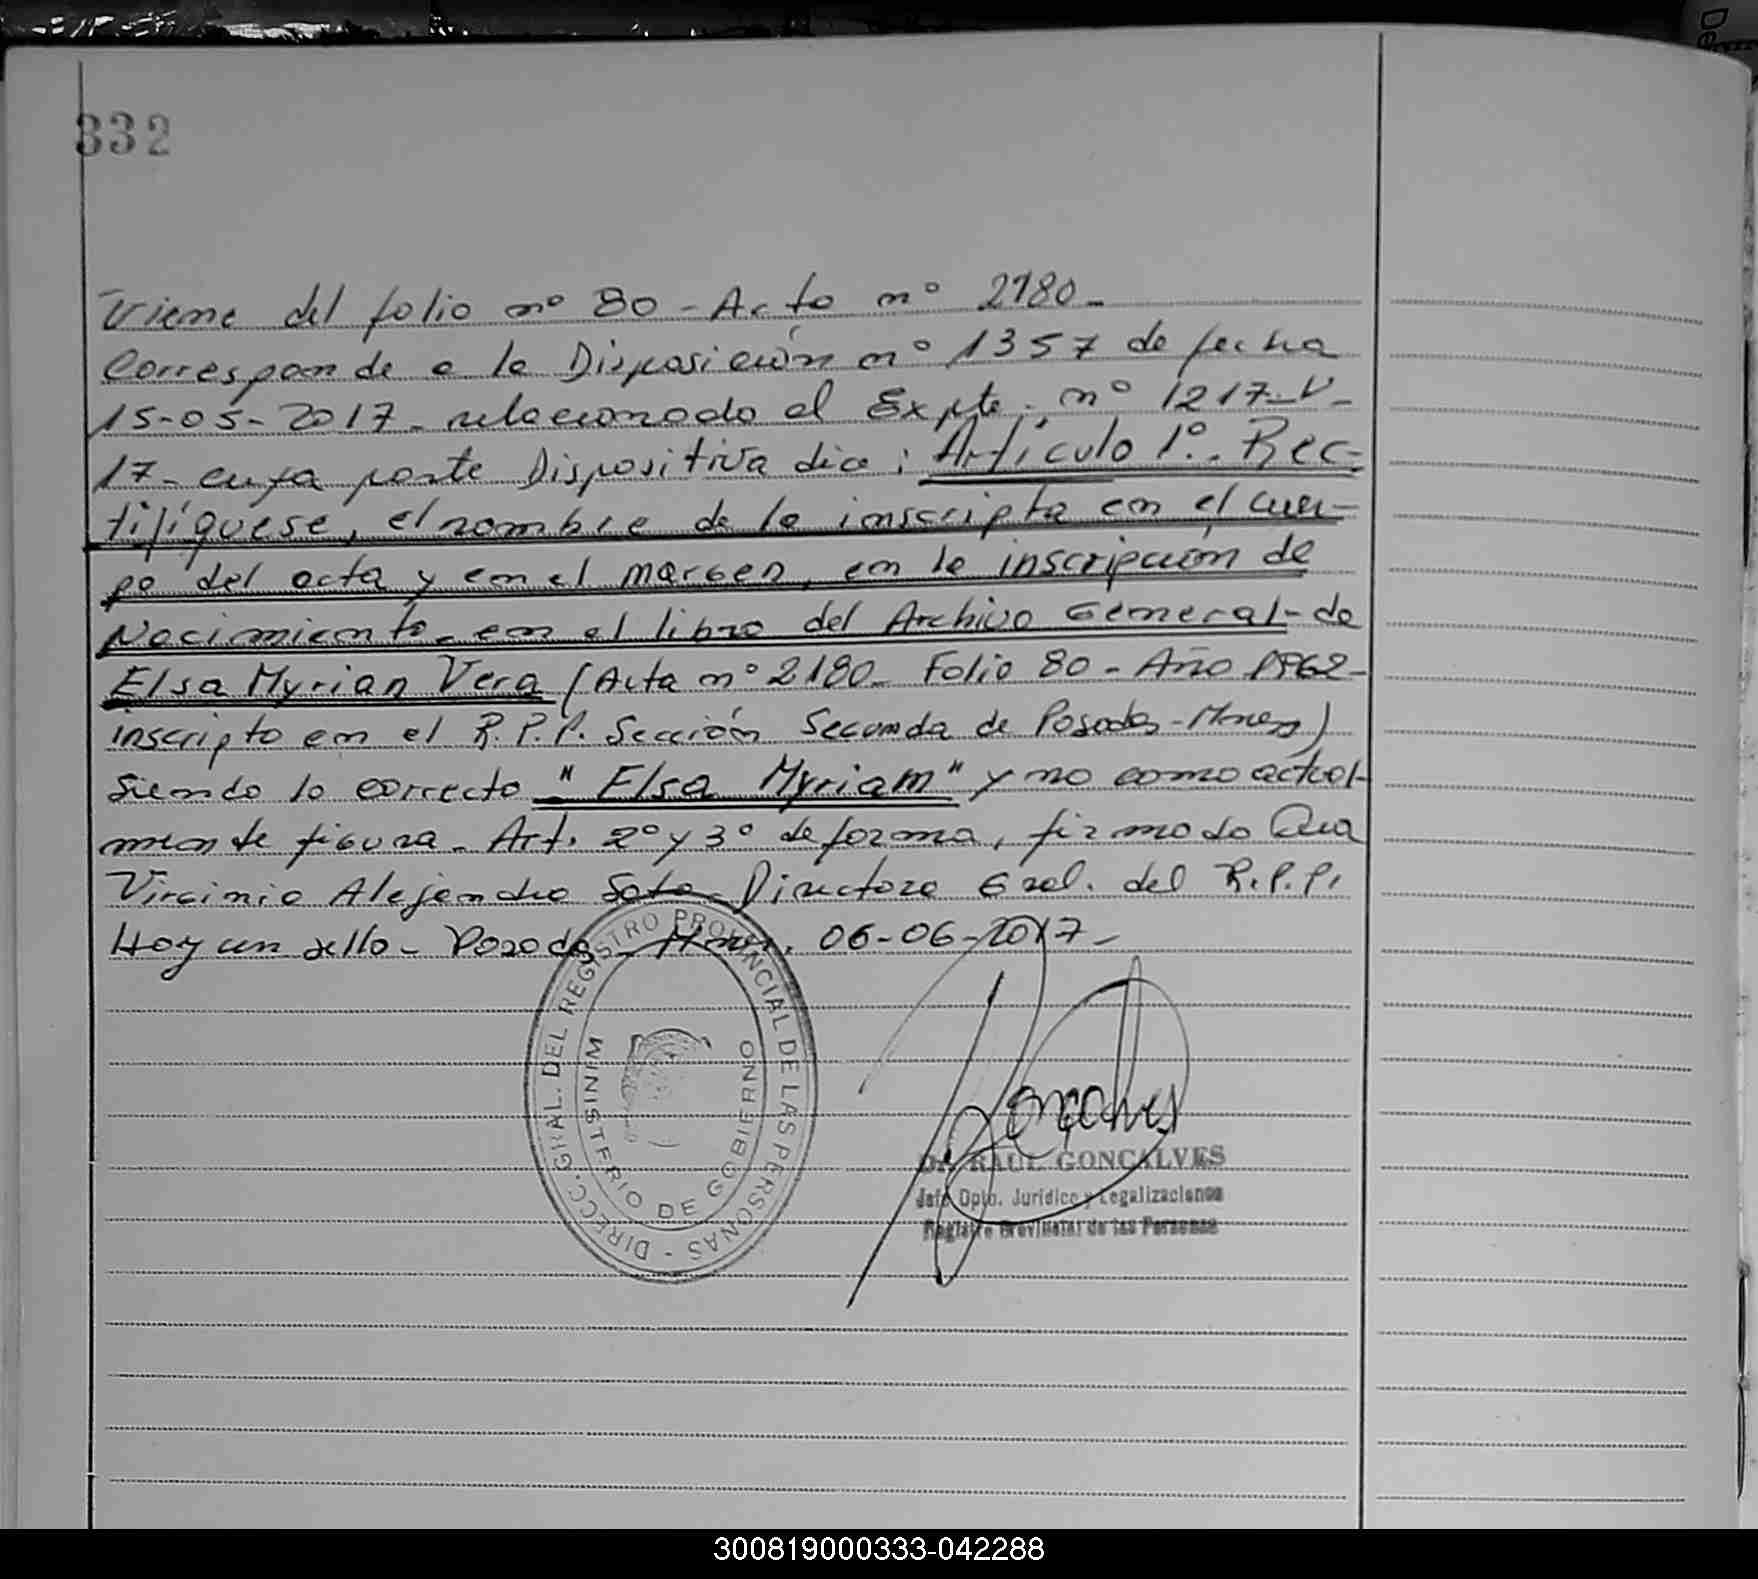 332
Viene del folio nº 80 - Acta nº 2180 -
Corresponde a la Disposición nº 1357 de fecha
15-05-2017 - relacionado al Expte. nº 1217-V-
17 - cuya parte Dispositiva dice: Artículo 1º.. Rec-
tifíquese, el nombre de la inscripta en el cuer-
po del acta y en el margen, en la inscripción de
Nacimiento - en el libro del Archivo General - de
Elsa Myrian Vera (Acta nº 2180 - Folio 80 - Año 1962 -
inscripto en el R.P.P. Sección Segunda de Posadas - Mnes)
Siendo lo correcto "Elsa Myriam" y no como actual-
mente figura - Art. 2º y 3º de forma, firmado
Virginia Alejandra Soto - Directora Gral. del R.P.P.
Hay un sello - Posadas - Mnes, 06-06-2017 -
DIRECC. GRAL. DEL REGISTRO PROVINCIAL DE LAS PERSONAS -
MINISTERIO DE GOBIERNO
Goncalves
Dr. RAUL GONCALVES
Jefe Dpto. Jurídico y Legalizaciones
Registro Provincial de las Personas
300819000333-042288